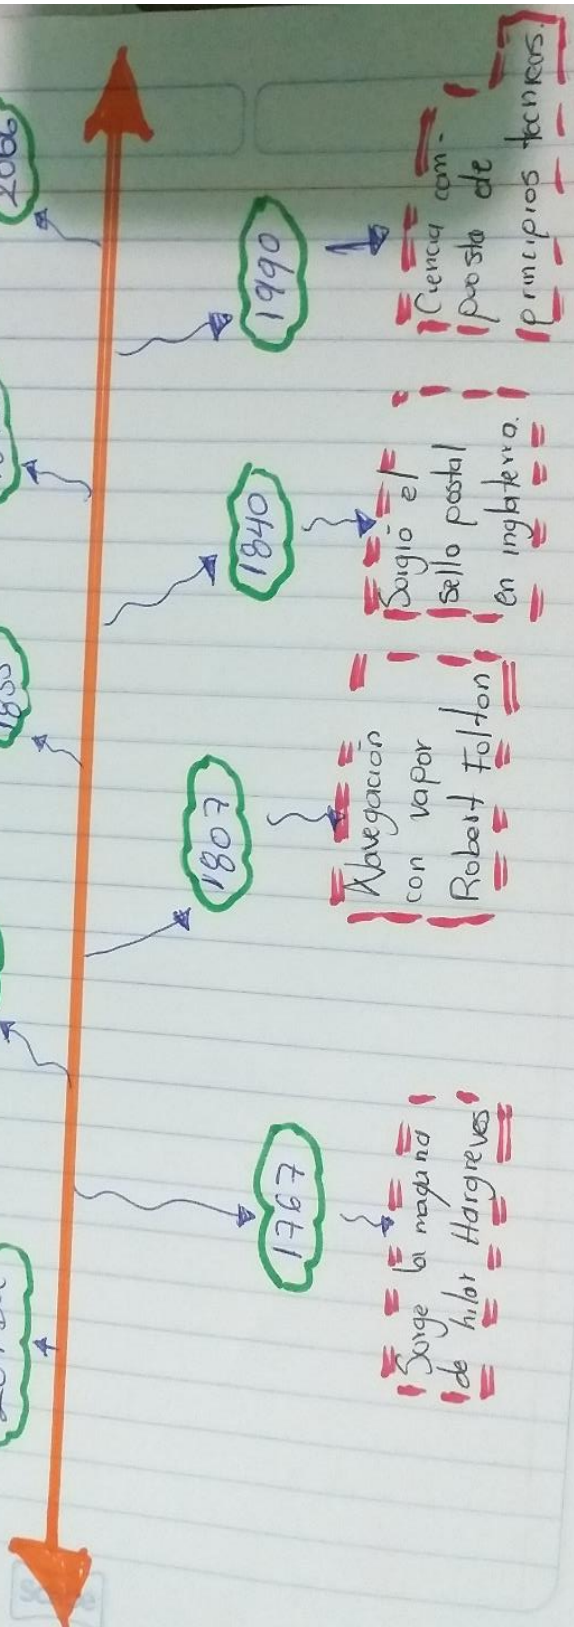 1767
Sorge la maquina
de hilar Hargreves
1807
Navegación
con vapor
Robert Folton
1840
Sorgio el
sello postal
en inglaterra.
1990
Ciencia com-
posta de
principios tecnicos.